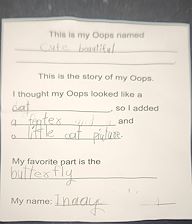 This is my Oops named
Cute beautiful
This is the story of my Oops.
I thought my Oops looked like a
cat, so I added
a and
a little cat picture.
My favorite part is the
butterfly
My name: Inaay